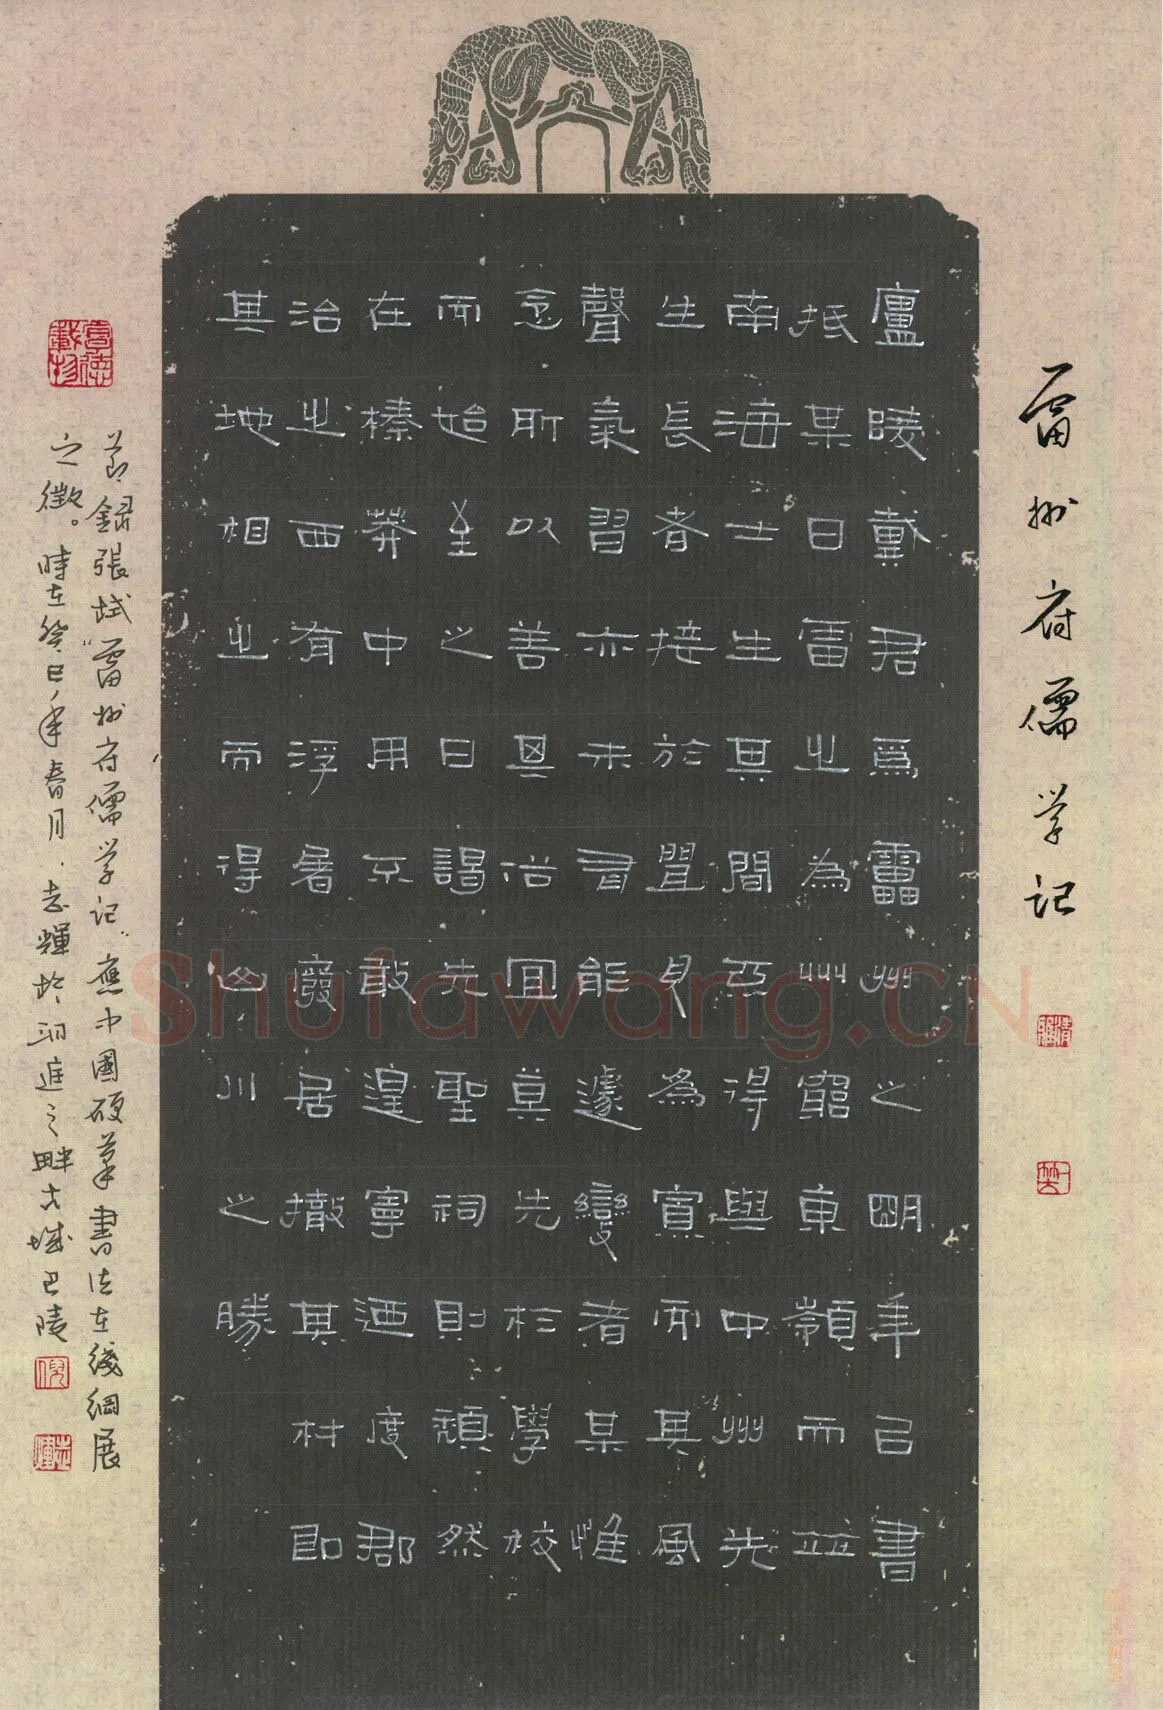 雷州府儒学记
廬陵戴君爲靁州之明年以書
抵某曰雷之為州窮東嶺而並
南海士生其間不得與中州先
生長者接於見聞為寡而其風
聲氣習亦未有能遽變者某惟
念所以善其俗宜莫先於學校
而始至之日謁先聖祠則頹然
在榛莽中用不敢遑寧迺度郡
治之西有浮屠廢居撤其材即
其地相之而得山川之勝
节錄張栻“雷州府儒学记”應中國硬筆書法在綫網展
之徵。時在癸巳年春月.志輝於洞庭之畔古城巴陵
厚德載物
Shufawang.CN